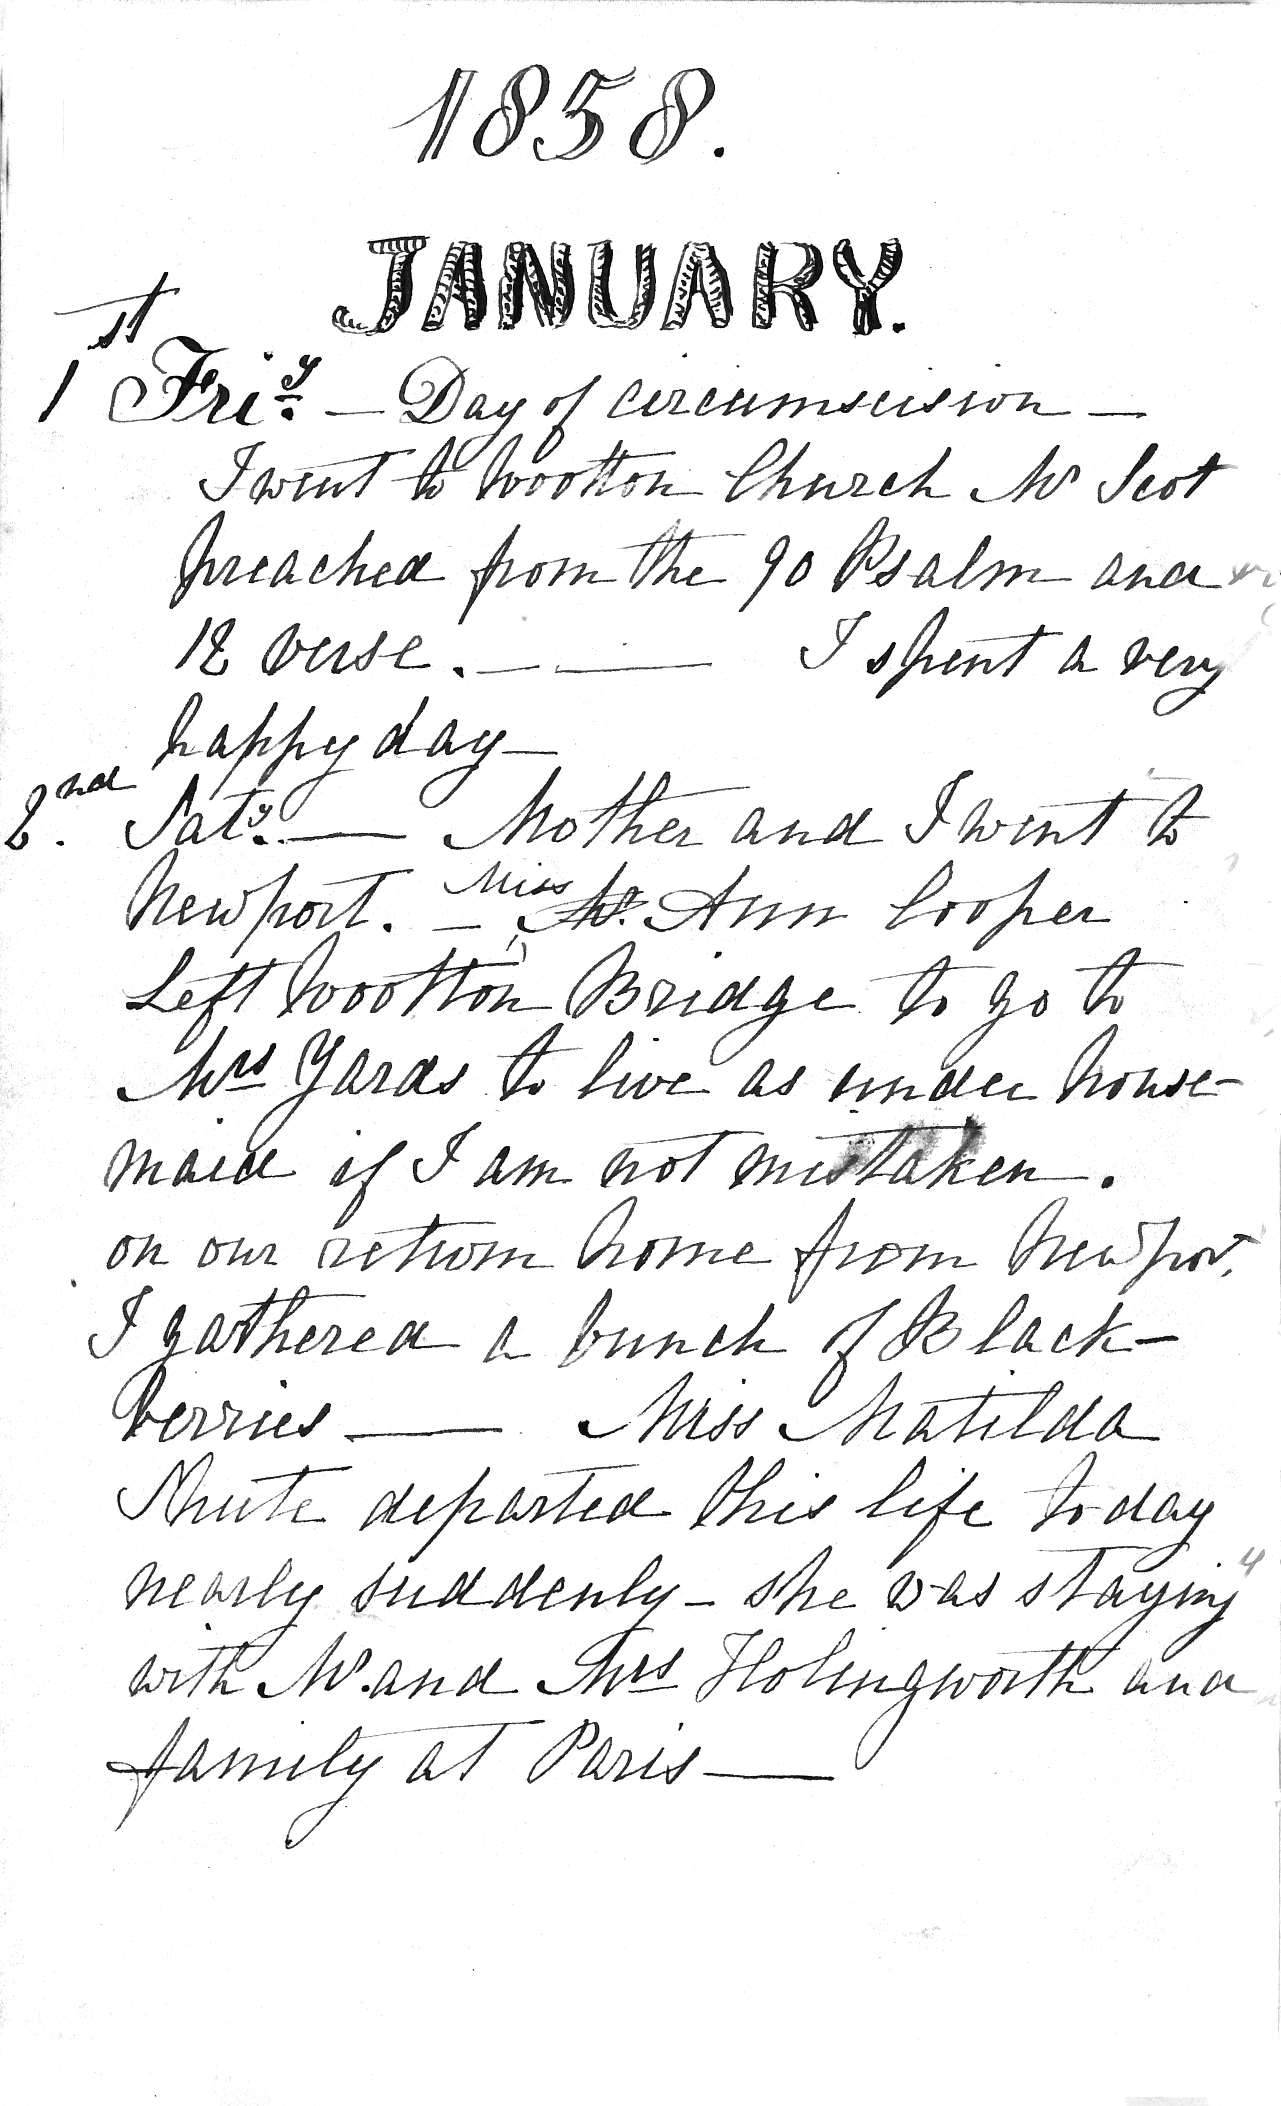 1858.
JANUARY.
1st Friy. — Day of circumscision —
I went to Wootton Church Mr Scot
preached from the 90 Psalm and
12 verse. — — I spent a very
happy day —
2nd. Saty. — Mother and I went to
Newport. — Miss Mr. Ann Cooper
Left Wootton Bridge to go to
Mrs Yards to live as under house-
maid if I am not mistaken.
on our return home from Newport.
I gathered a bunch of Black-
berries — Miss Matilda
departed this life to day
nearly suddenly - she was staying
with Mr. and Mrs Holingworth and
family at Paris —